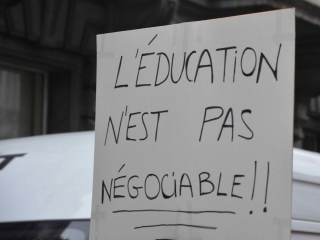 L'ÉDUCATION
N'EST PAS
NÉGOCIABLE!!